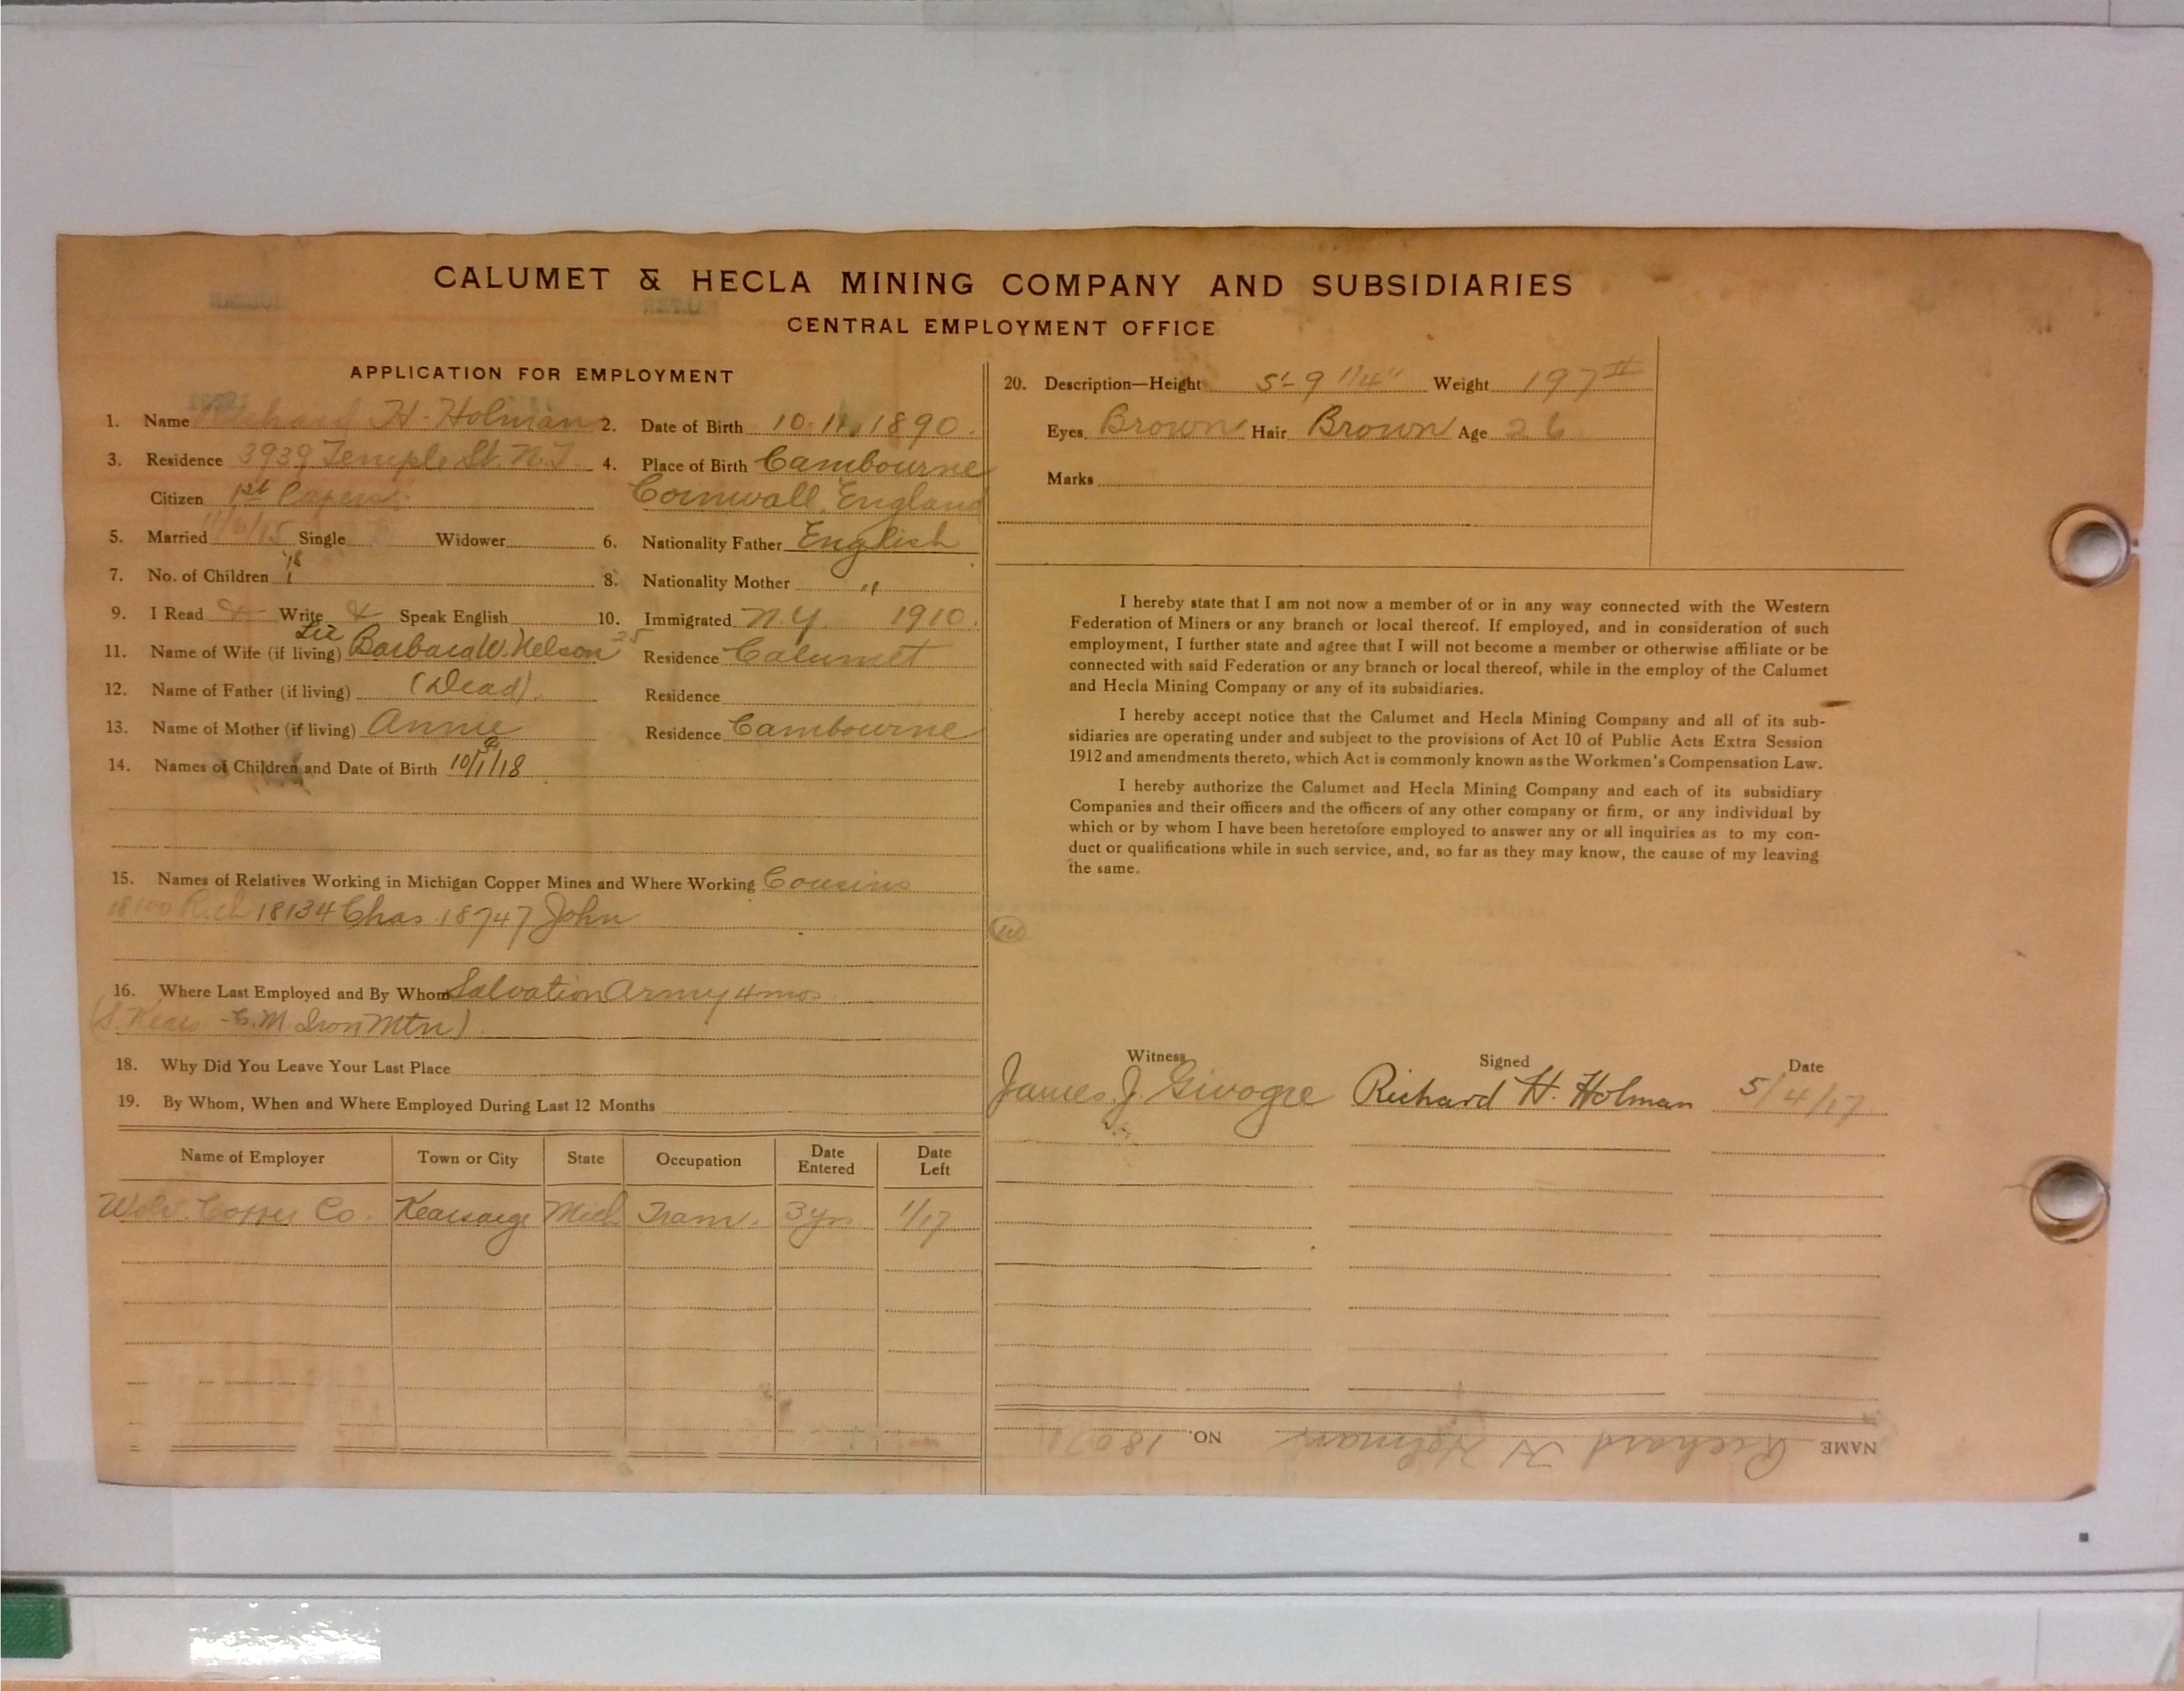 CALUMET & HECLA MINING COMPANY AND SUBSIDIARIES
CENTRAL EMPLOYMENT OFFICE
APPLICATION FOR EMPLOYMENT
1. Name Richard H. Holman 2. Date of Birth 10. 11. 1890.
3. Residence 3939 Temple St. N.T. 4. Place of Birth Cambourne
Citizen 1st Papers. Cornwall, England
5. Married 11/6/15 Single Widower 6. Nationality Father English
7. No. of Children 1 8. Nationality Mother "
9. I Read & Write & Speak English 10. Immigrated N.Y. 1910.
11. Name of Wife (if living) Barbara W. Nelson 25 Residence Calumet
12. Name of Father (if living) (Dead). Residence
13. Name of Mother (if living) Annie Residence Cambourne
14. Names of Children and Date of Birth 10/1/18
15. Names of Relatives Working in Michigan Copper Mines and Where Working Cousins
18100 Rich 18134 Chas 18747 John
16. Where Last Employed and By Whom Salvation Army 4 mos
(S. Kears - C.M. Iron Mtn).
18. Why Did You Leave Your Last Place
19. By Whom, When and Where Employed During Last 12 Months
Name of Employer Town or City State Occupation Date Entered Date Left
Wolv. Copper Co. Kearsarge Mich Tram. 3 yrs 1/17
20. Description—Height 5'-9 1/4" Weight 197#
Eyes Brown Hair Brown Age 26
Marks
I hereby state that I am not now a member of or in any way connected with the Western
Federation of Miners or any branch or local thereof. If employed, and in consideration of such
employment, I further state and agree that I will not become a member or otherwise affiliate or be
connected with said Federation or any branch or local thereof, while in the employ of the Calumet
and Hecla Mining Company or any of its subsidiaries.
I hereby accept notice that the Calumet and Hecla Mining Company and all of its sub-
sidiaries are operating under and subject to the provisions of Act 10 of Public Acts Extra Session
1912 and amendments thereto, which Act is commonly known as the Workmen's Compensation Law.
I hereby authorize the Calumet and Hecla Mining Company and each of its subsidiary
Companies and their officers and the officers of any other company or firm, or any individual by
which or by whom I have been heretofore employed to answer any or all inquiries as to my con-
duct or qualifications while in such service, and, so far as they may know, the cause of my leaving
the same.
Witness Signed Date
James J. Givogre Richard H. Holman 5/4/17
NAME Richard H Holman NO.